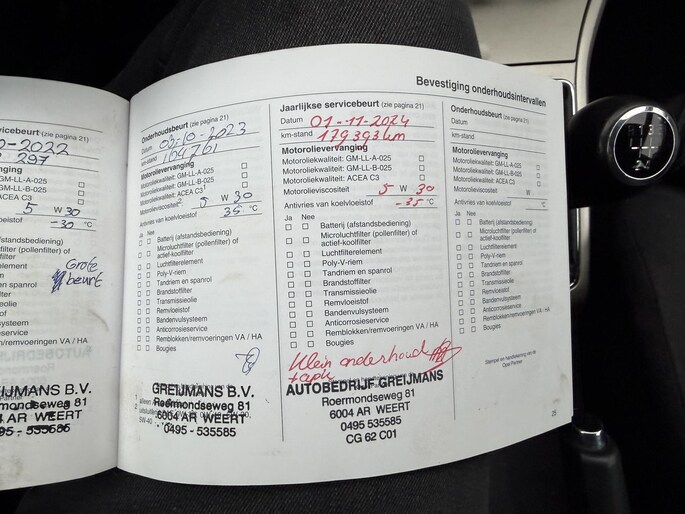 Bevestiging onderhoudsintervallen
servicebeurt (zie pagina 21)
-2022
297
5 W 30
-30 °C
(afstandsbediening)
actief-koolfilter
Grote
beurt
GREIJMANS B.V.
WEERT
95 - 535585
Onderhoudsbeurt (zie pagina 21)
Datum 03-10-2023
km-stand 164761
Motorolievervanging
Motoroliekwaliteit: GM-LL-A-025
Motoroliekwaliteit: GM-LL-B-025
Motoroliekwaliteit: ACEA C3
Motorolieviscositeit 5 W 30
Antivries van koelvloeistof 35 °C
Ja Nee
Batterij (afstandsbediening)
Microluchtfilter (pollenfilter) of
actief-koolfilter
Luchtfilterelement
Poly-V-riem
Tandriem en spanrol
Brandstoffilter
Transmissieolie
Remvloeistof
Bandenvulsysteem
Anticorrosieservice
Remblokken/remvoeringen VA / HA
Bougies
GREIJMANS B.V.
Roermondseweg 81
6004 AR WEERT
0495 - 535585
Jaarlijkse servicebeurt (zie pagina 21)
Datum 01-11-2024
km-stand 179393km
Motorolievervanging
Motoroliekwaliteit: GM-LL-A-025
Motoroliekwaliteit: GM-LL-B-025
Motoroliekwaliteit: ACEA C3
Motorolieviscositeit 5 W 30
Antivries van koelvloeistof -35 °C
Ja Nee
Batterij (afstandsbediening)
Microluchtfilter (pollenfilter) of
actief-koolfilter
Luchtfilterelement
Poly-V-riem
Tandriem en spanrol
Brandstoffilter
Transmissieolie
Remvloeistof
Bandenvulsysteem
Anticorrosieservice
Remblokken/remvoeringen VA / HA
Bougies
Klein onderhoud
+apk
AUTOBEDRIJF GREIJMANS
Roermondseweg 81
6004 AR WEERT
0495 535585
CG 62 C01
Onderhoudsbeurt (zie pagina 21)
Datum
km-stand
Motorolievervanging
Motoroliekwaliteit: GM-LL-A-025
Motoroliekwaliteit: GM-LL-B-025
Motoroliekwaliteit: ACEA C3
Motorolieviscositeit W
Antivries van koelvloeistof °C
Ja Nee
Batterij (afstandsbediening)
Microluchtfilter (pollenfilter) of
actief-koolfilter
Luchtfilterelement
Poly-V-riem
Tandriem en spanrol
Brandstoffilter
Transmissieolie
Remvloeistof
Bandenvulsysteem
Anticorrosieservice
Remblokken/remvoeringen VA / HA
Bougies
Stempel en handtekening van de
Opel Partner